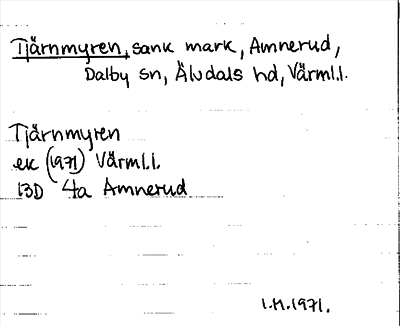 Tjärnmyren, sank mark, Amnerud,
Dalby sn, Älvdals hd, Värml.l.
Tjärnmyren
ek (1971) Värml.l.
13D 4a Amnerud
I.H.1971.